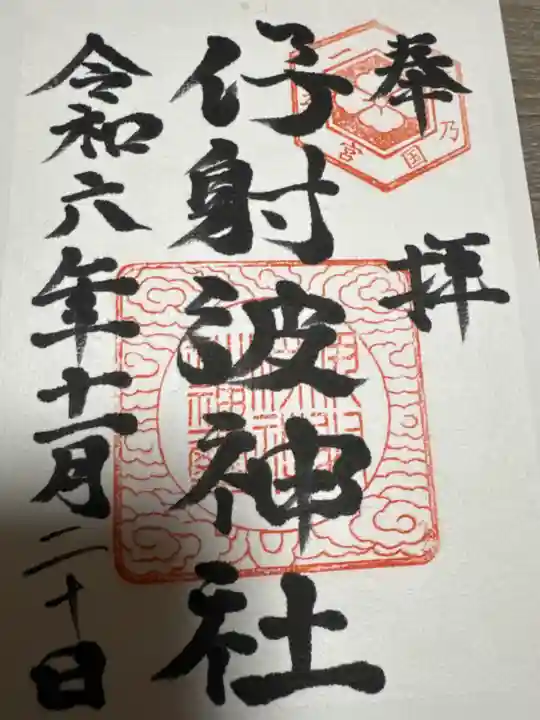 奉拝
伊射波神社
令和六年十一月二十日